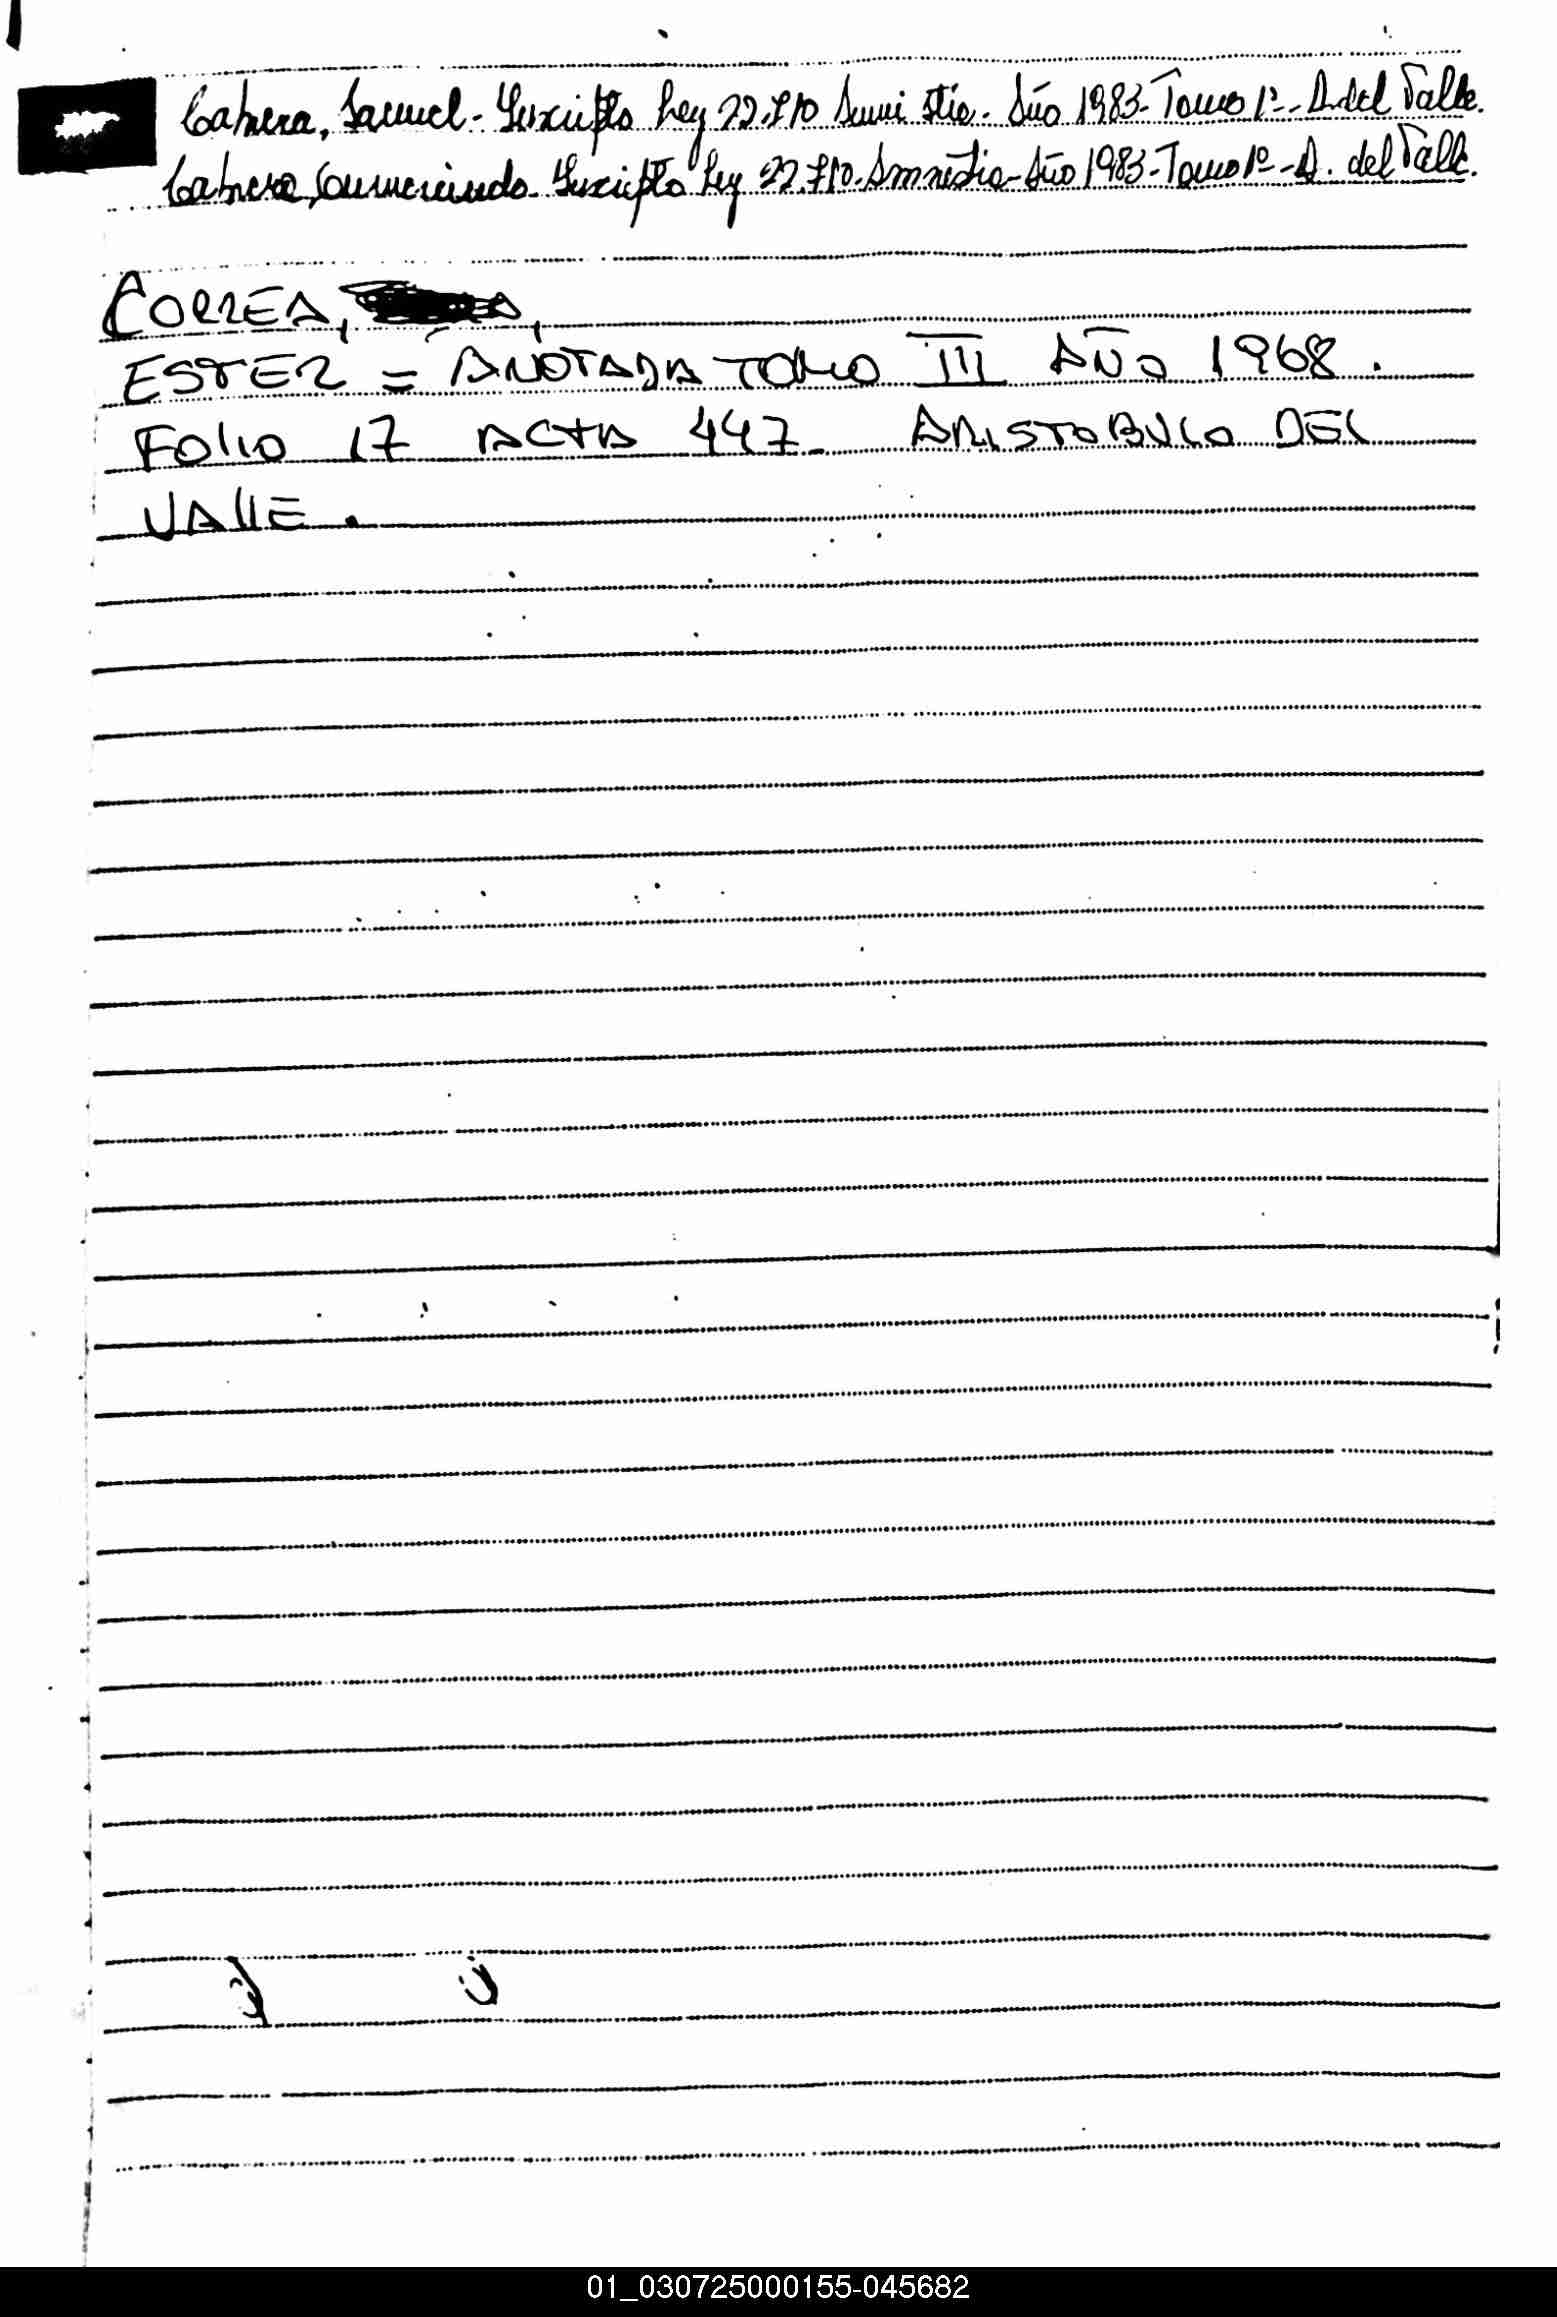 Cabrera, Samuel - Inscripto Ley 22.710 Amni stia - Año 1983 - Tomo 1º - A. del Valle.
Cabrera, Inscripto Ley 22.710 - Amnistia - Año 1983 - Tomo 1º - A. del Valle.
CORREA,
ESTER = ANOTADA TOMO III AÑO 1968.
FOLIO 17 ACTA 447 - ARISTOBULO DEL
VALLE.
01_030725000155-045682